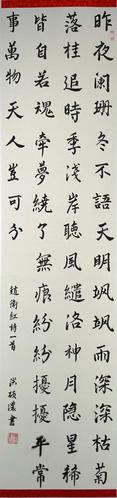 昨夜阑珊冬不語天明飒飒雨深深枯菊
落桂追時季淺岸聽風繾洛神月隐星稀
皆自若魂牽夢繞了無痕紛紛擾擾平常
事萬物天人豈可分
趙衛紅詩一首
洪碩漢書